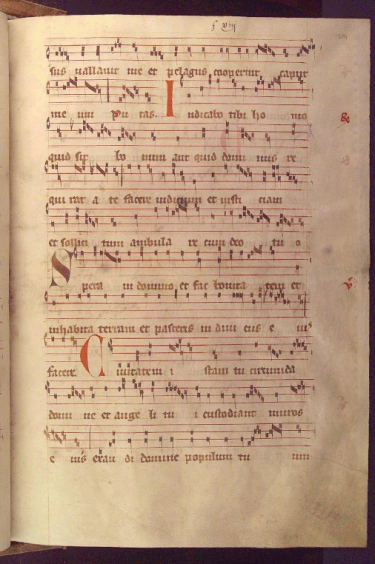 sus uallauit me et pelagus cooperuit caput
me um Indicabo tibi ho mo
quid sit bo num aut quid domi nus re
qui rat a te facere iudicium et iusti ciam
et sollici tum ambula re cum deo tu o
Spera in domino et fac bonita tem et
inhabita terram et pasceris in diui ciis e ius
facere Ciuitatem i stam tu circumda
domi ne et ange li tu i custodiant muros
e ius exau di domine populum tu um